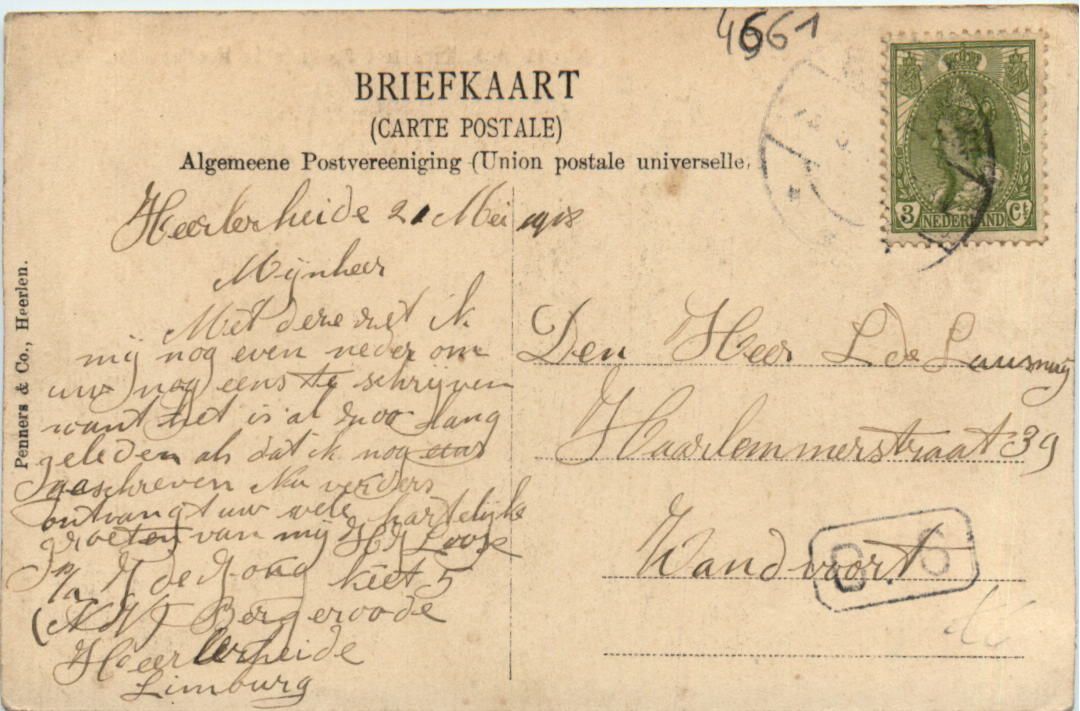 4661
BRIEFKAART
(CARTE POSTALE)
Algemeene Postvereeniging (Union postale universelle.
3 NEDERLAND Ct
Penners & Co., Heerlen.
Heerlerheide 21 Mei 1918
Mijnheer
Met deze zet ik
mij nog even neder om
uw nog eens te schrijven
want het is al zoo lang
geleden als dat ik nog eens
geschreven Nu verders
ontvangt uw vele hartelijke
groeten van mij
P/a de Jong keet 5
Bergeroode
Heerlerheide
Limburg
Den Heer L de
Haarlemmerstraat 39
Zandvoort
8. S